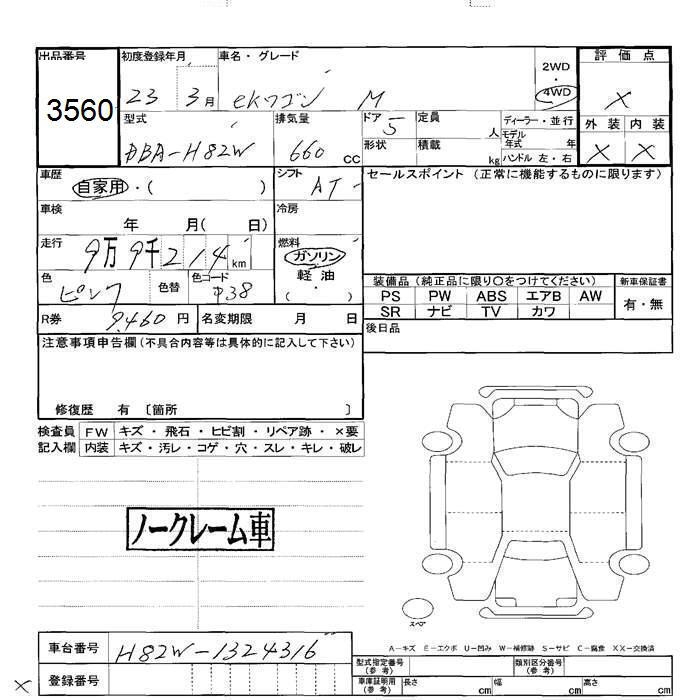 出品番号 初度登録年月 車名・グレード 2WD 評価点
3560 23 3月 ekワゴン M ・ 4WD X
型式 排気量 ドア 5 定員 人 ディーラー・並行 外装 内装
DBA-H82W 660 cc 形状 積載 kg モデル年式 年 X X
ハンドル 左・右
車歴 自家用・( ) シフト AT セールスポイント (正常に機能するものに限ります)
車検 年 月( 日) 冷房
走行 9万9千214 km 燃料 ガソリン
軽油
( )
色 ピンク 色替 色コード 装備品 (純正品に限り○をつけてください) 新車保証書
PS PW ABS エアB AW 有・無
SR ナビ TV カワ
R券 9,460円 名変期限 月 日 後日品
注意事項申告欄(不具合内容等は具体的に記入して下さい)
修復歴 有 〔箇所 〕
検査員 FW キズ・飛石・ヒビ割・リペア跡・×要
記入欄 内装 キズ・汚レ・コゲ・穴・スレ・キレ・破レ
ノークレーム車
スペア
A-キズ E-エクボ U-凹み W-補修跡 S-サビ C-腐食 XX-交換済
車台番号 H82W-1324316 型式指定番号(参考) 類別区分番号(参考)
X 登録番号 車庫証明用(参考) 長さ cm 幅 cm 高さ cm